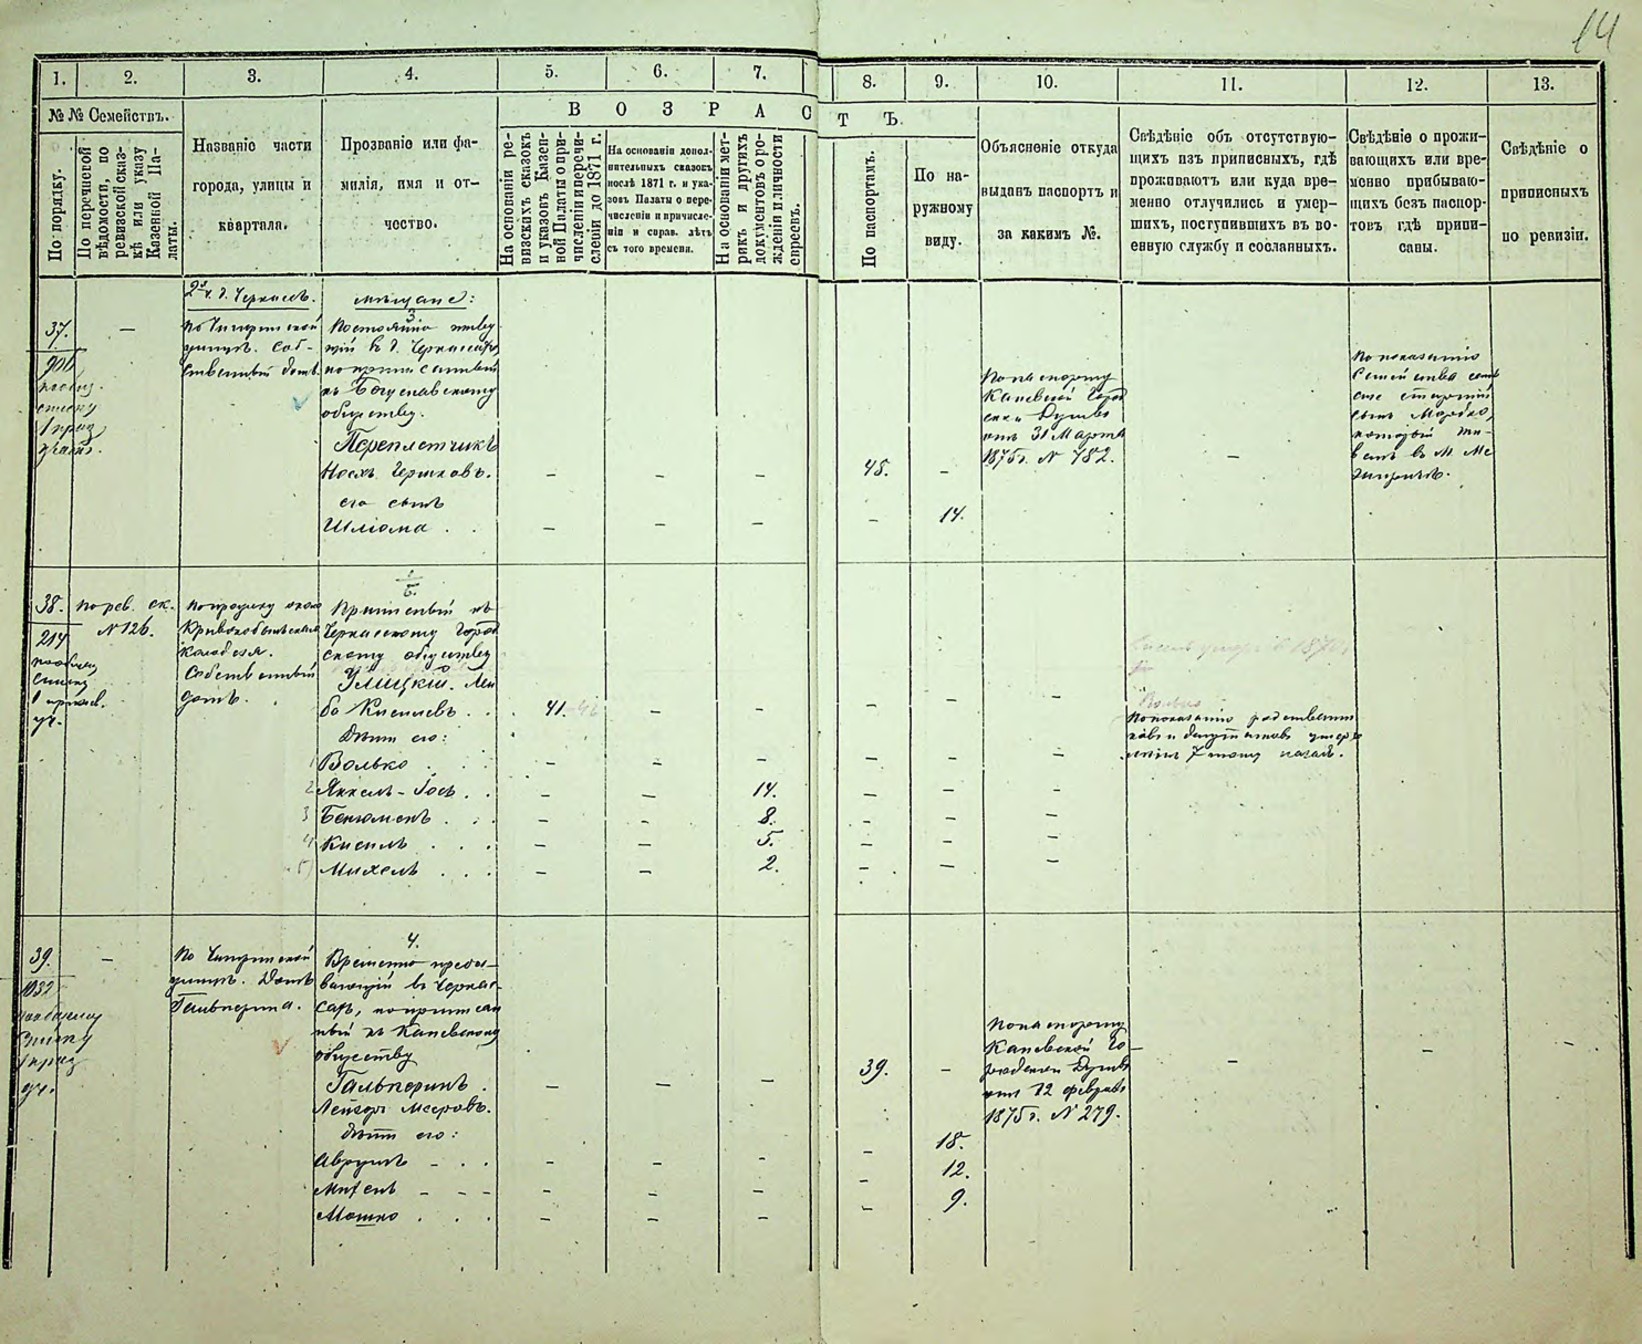 14
1.
2.
3.
4.
5.
6.
7.
8.
9.
10.
11.
12.
13.
№№ Семействъ.
По порядку.
По перечневой
вѣдомости, по
ревизской сказ-
кѣ или указу
Казенной Па-
латы.
Названіе части
города, улицы и
квартала.
Прозваніе или фа-
милія, имя и от-
чество.
ВОЗРАСТЪ.
На основаніи ре-
визскихъ сказокъ
и указовъ Казен-
ной Палаты о при-
численіи и перечи-
сленіи до 1871 г.
На основаніи допол-
нительныхъ сказокъ
послѣ 1871 г. и ука-
зовъ Палаты о пере-
численіи и причисле-
ніи и справ. лѣтъ
съ того времени.
На основаніи мет-
рикъ и другихъ
документовъ о ро-
жденіи и личности
евреевъ.
По паспортамъ.
По на-
ружному
виду.
Объясненіе откуда
выданъ паспортъ и
за какимъ №.
Свѣдѣніе объ отсутствую-
щихъ изъ приписныхъ, гдѣ
проживаютъ или куда вре-
менно отлучились и умер-
шихъ, поступившихъ въ во-
енную службу и сосланныхъ.
Свѣдѣніе о прожи-
вающихъ или вре-
менно прибываю-
щихъ безъ паспор-
товъ гдѣ припи-
саны.
Свѣдѣніе о
приписныхъ
по ревизіи.
2й ч. г. Черкасъ.
мѣщане:
37.
—
3
Постоянно живу-
щій въ г. Черкассахъ
но приписанный
къ Богуславскому
обществу.
Переплетчикъ
Носхъ Гершковъ.
его сынъ
Шліома
улицѣ. Соб-
ственный домъ
48.
14.
По паспорту
Каневской Город
ской Думы
отъ 31 Марта
1875г. № 782.
По показанію
сынъ Мордко,
который жи-
ветъ въ М. Ме
жиричъ.
38.
По рев. ск.
№ 126.
214
колодезя.
Собственный
домъ.
5.
Приписный къ
Черкасскому Город
скому обществу
Улицкій. Лей
ба Кисилевъ
41.
Дѣти его:
1 Волько
2 Янкель-Іось
14.
3 Беніоменъ
8.
4 Кисиль
5.
5) Михель
2.
По показанію родственни
ковъ и депутатовъ умеръ
назадъ.
39.
—
1032
По Чигринской
улицѣ. Домъ
Гальперина.
4.
Временно пребы-
вающій въ Черкас-
сахъ, но приписан
ный къ Каневскому
обществу
Гальперинъ
Лейзоръ Мееровъ.
дѣти его:
Аврумъ
Мошко
39.
18.
12.
9.
По паспорту
Каневской Го-
родской Думы
отъ 12 февраля
1875г. № 279.